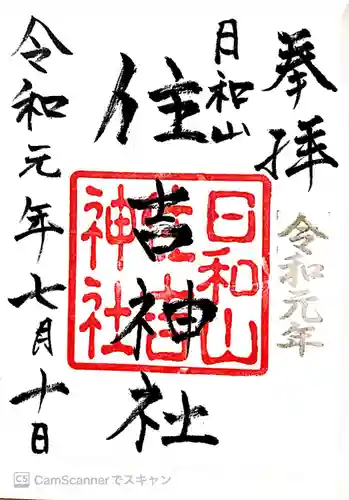 奉拝
令和元年
日和山
住吉神社
日和山
住吉
神社
令和元年七月十日
CS CamScannerでスキャン